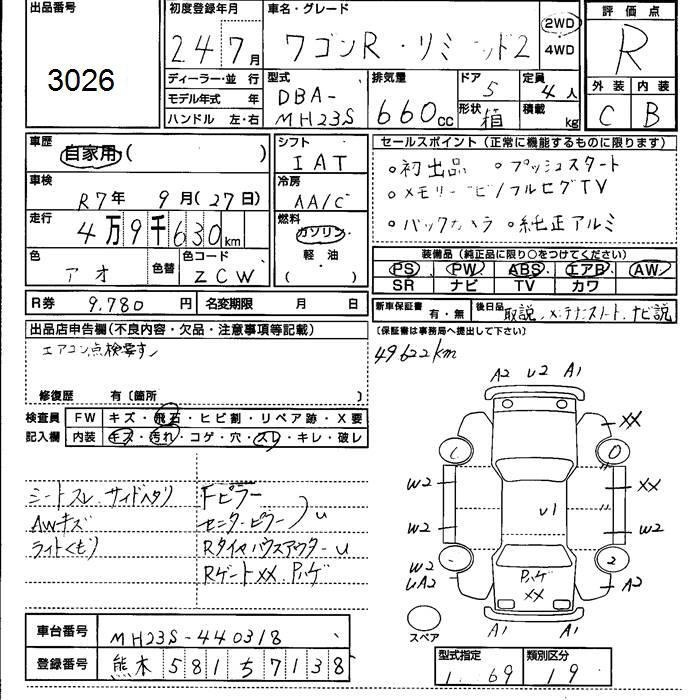 出品番号
3026
初度登録年月
24 7月
車名・グレード
ワゴンR・リミテッド2
2WD
4WD
評価点
R
外装 内装
C B
ディーラー・並行
モデル年式 年
ハンドル 左・右
型式
DBA-
MH23S
排気量
660cc
ドア
5
形状
箱
定員
4人
積載
kg
車歴
自家用・( )
車検
R7年 9月(27日)
走行
4万9千630km
色
アオ
色替
色コード
ZCW
シフト
IAT
冷房
AA/C
燃料
ガソリン
軽・油
( )
セールスポイント(正常に機能するものに限ります)
○初出品 ○プッシュスタート
○メモリーナビ/フルセグTV
○バックカメラ ○純正アルミ
装備品(純正品に限り○をつけてください)
PS PW ABS エアB AW
SR ナビ TV カワ
R券 9,780円
名変期限 月 日
新車保証書 有・無
後日品 取説,メンテナンスノート,ナビ説
(保証書は事務局へ提出して下さい)
出品店申告欄(不良内容・欠品・注意事項等記載)
エアコン点検要す
49622km
修復歴 有〔箇所 〕
検査員記入欄
FW キズ・飛石・ヒビ割・リペア跡・X要
内装 キズ・汚れ・コゲ・穴・スレ・キレ・破レ
シートスレ.サイドヘタリ
AWキズ
ライトくもり
Fピラー
センターピラー
U
RタイヤハウスアウターU
RゲートXX.Pハゲ
A2 U2 A1
XX
W2
XX
W2
U1
W2
W2
UA2
2
A2
Pハゲ
XX
A1 A1
スペア
車台番号 MH23S-440318
登録番号 熊本 581 ち 7138
型式指定
1 69
類別区分
19